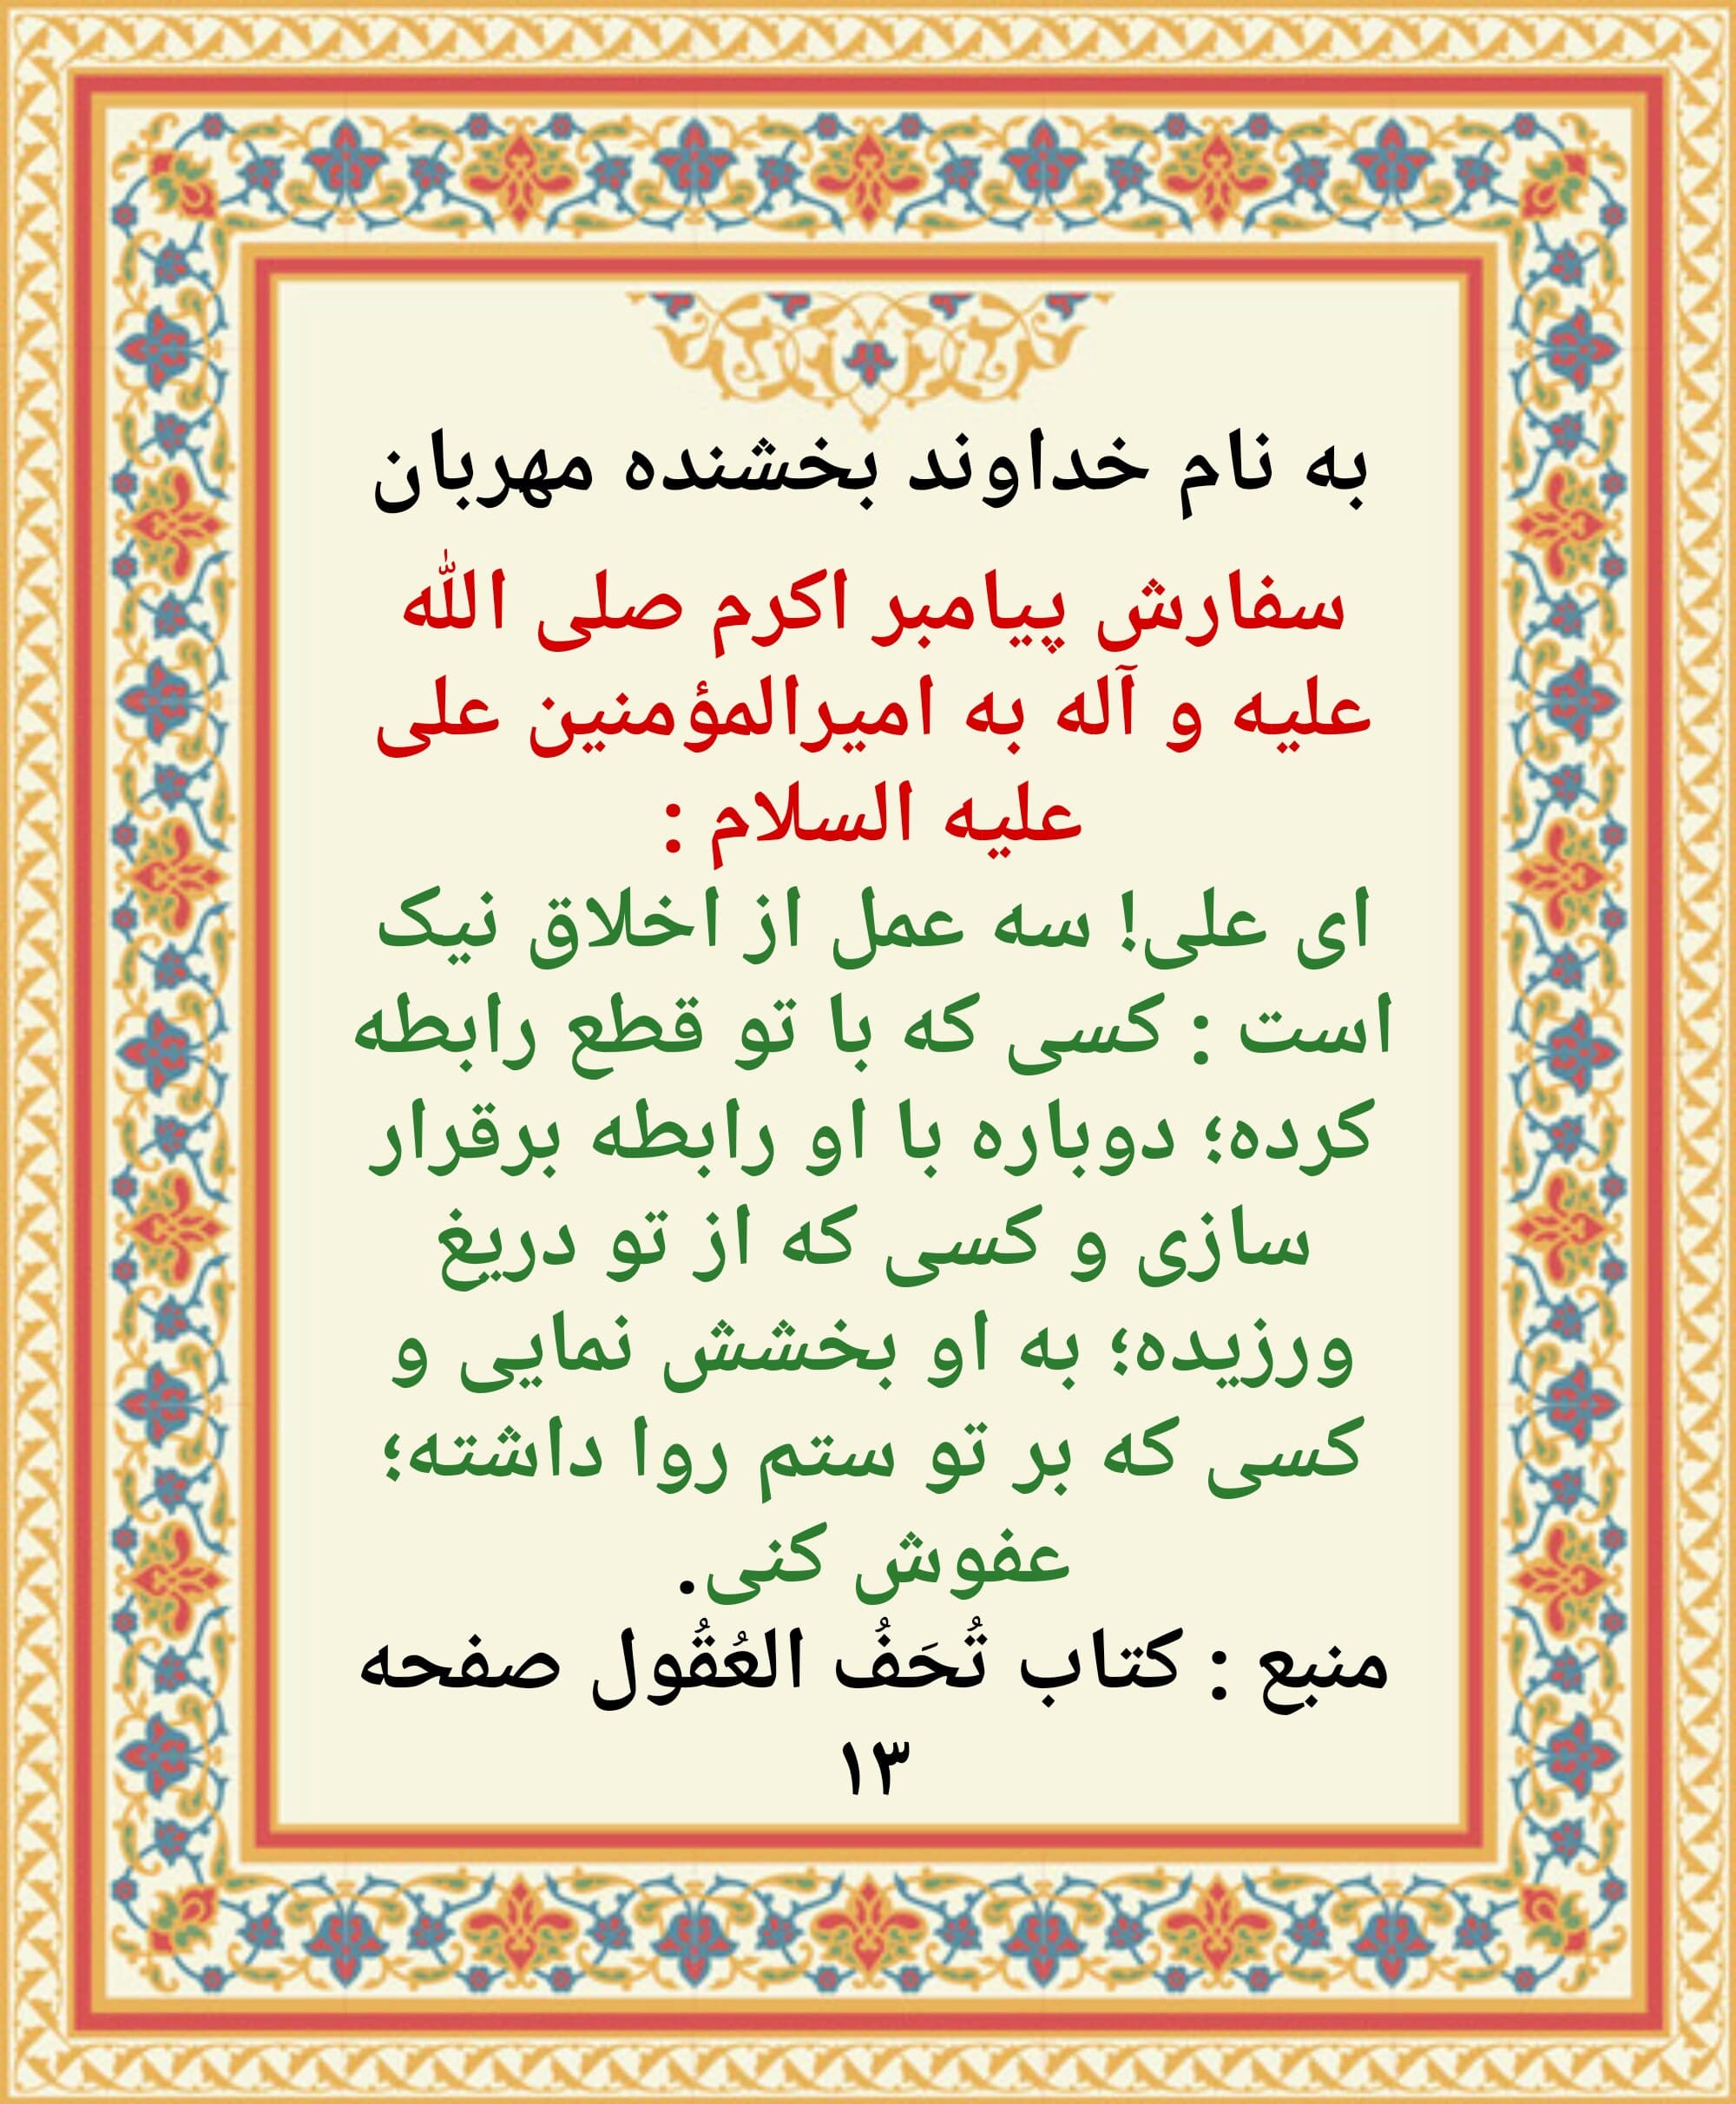 به نام خداوند بخشنده مهربان
سفارش پیامبر اکرم صلی الله
علیه و آله به امیرالمؤمنین علی
علیه السلام :
ای علی! سه عمل از اخلاق نیک
است : کسی که با تو قطع رابطه
کرده؛ دوباره با او رابطه برقرار
سازی و کسی که از تو دریغ
ورزیده؛ به او بخشش نمایی و
کسی که بر تو ستم روا داشته؛
عفوش کنی.
منبع : کتاب تُحَفُ العُقُول صفحه
۱۳